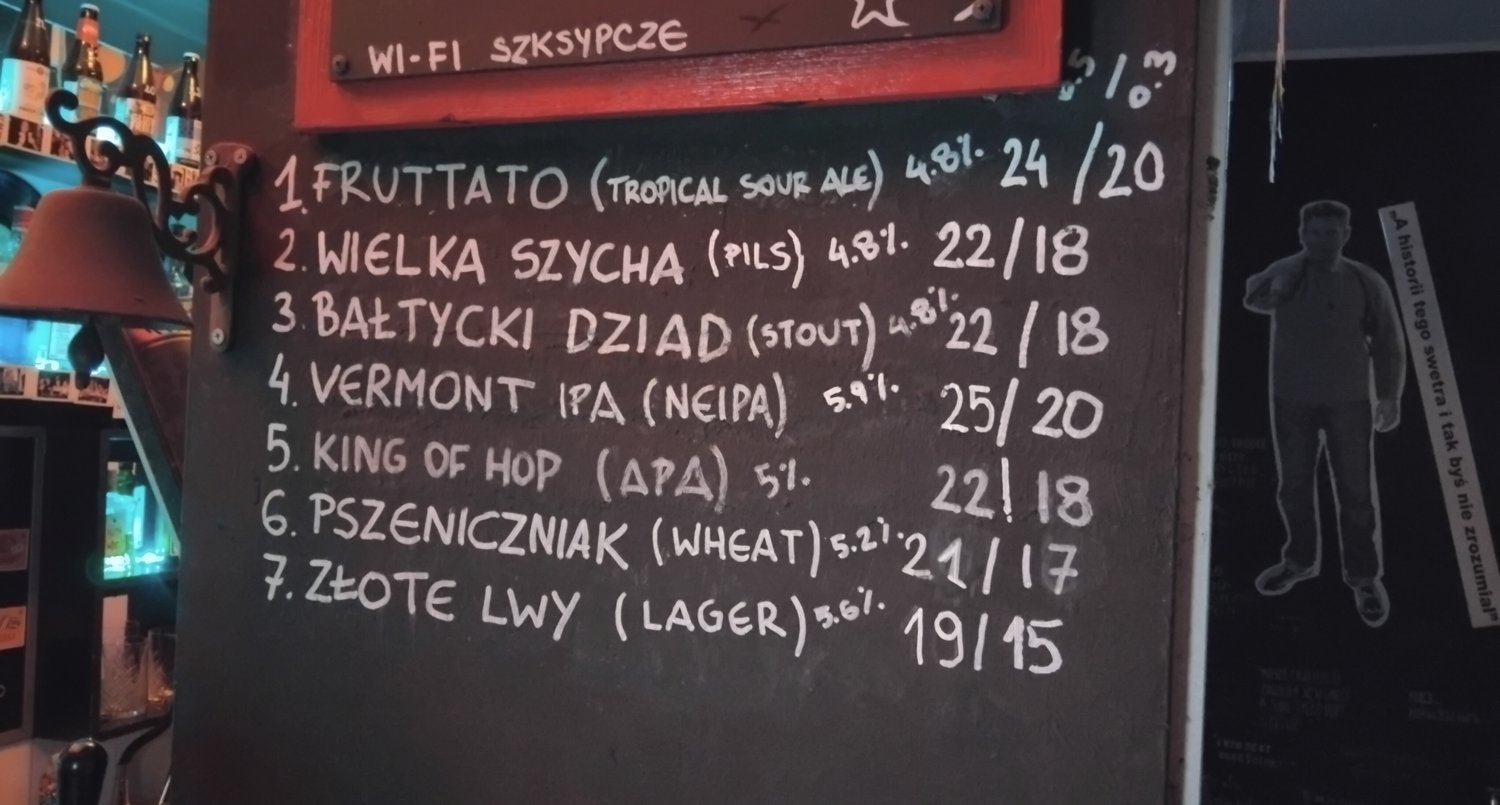 WI-FI SZKSYPCZE
0.5/0.3
1. FRUTTATO (TROPICAL SOUR ALE) 4.8% 24/20
2. WIELKA SZYCHA (PILS) 4.8% 22/18
3. BAŁTYCKI DZIAD (STOUT) 4.8% 22/18
4. VERMONT IPA (NEIPA) 5.9% 25/20
5. KING OF HOP (APA) 5% 22! 18
6. PSZENICZNIAK (WHEAT) 5.2% 21/17
7. ZŁOTE LWY (LAGER) 5.6% 19/15
„A historii tego swetra i tak byś nie zrozumiał"